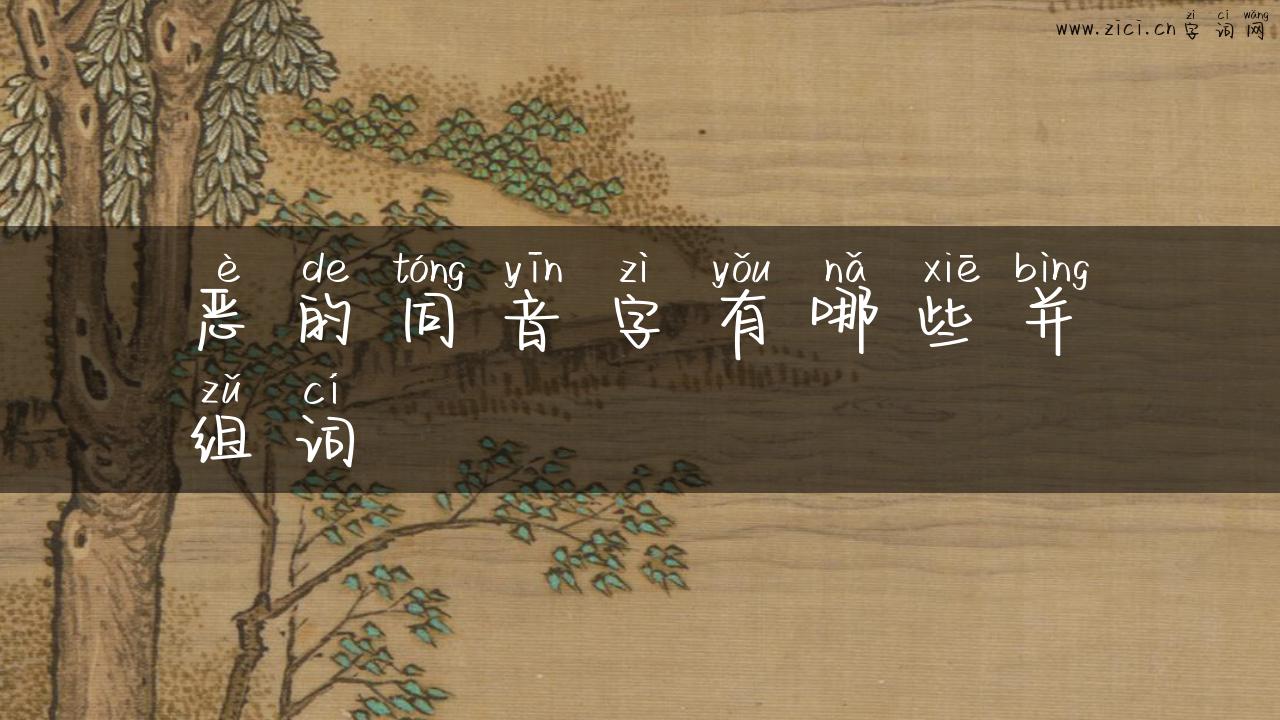 zì cí wǎng
www.zici.cn字词网
è de tóng yīn zì yǒu nǎ xiē bìng
恶的同音字有哪些并
zǔ cí
组词